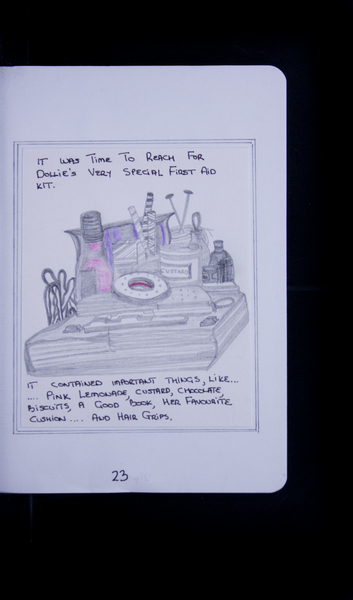 IT WAS TIME TO REACH FOR
DOLLIE'S VERY SPECIAL FIRST AID
KIT.
CUSTARD
IT CONTAINED IMPORTANT THINGS, LIKE...
.... PINK LEMONADE, CUSTARD, CHOCOLATE
BISCUITS, A GOOD BOOK, HER FAVOURITE
CUSHION .... AND HAIR GRIPS.
23